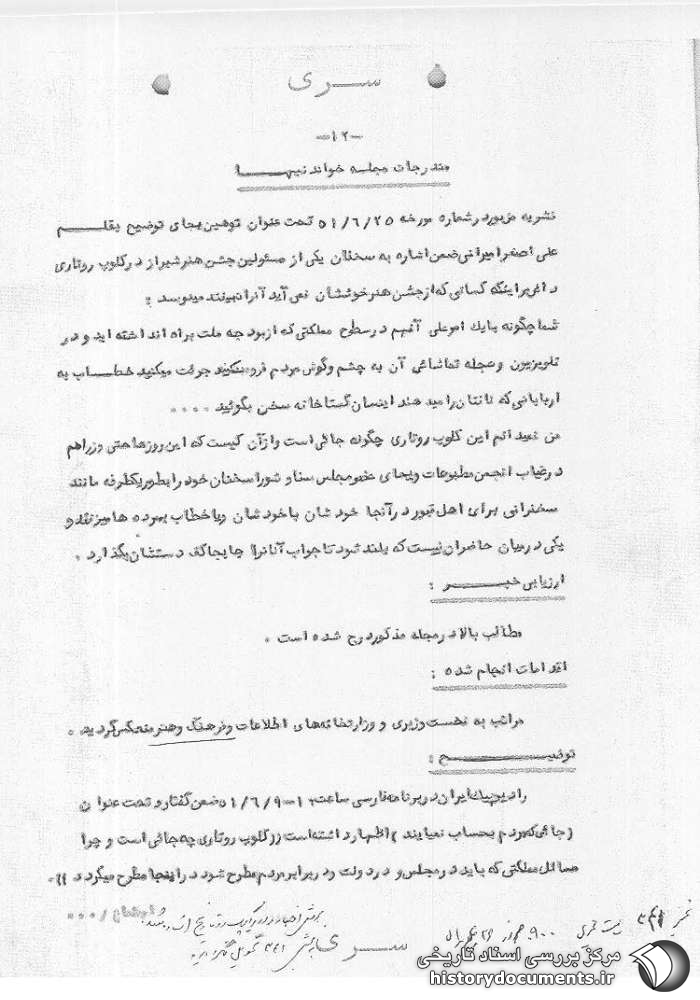 ســری
-۱۲-
مندرجات مجله خواندنیهــا
نشریه مزبور در شماره مورخه ۵۱/۶/۲۵ تحت عنوان توهین بجای توضیح بقلــم
علی اصغر امیرانی ضمن اشاره به سخنان یکی از مسئولین جشن هنر شیراز در کلوپ روتاری
دائر بر اینکه کسانی که از جشن هنر خوششان نمی آید آنرا نبینند مینوسد :
شما چگونه با یک امر ملی آنهم در سطوح مملکتی که از بود جه ملت براه انداشته اید و در
تلویزیون و مجله تماشای آن به چشم و گوش مردم فرو میکنید جرئت میکنید خطــاب به
اربابانی که نانتان را مید هند اینسان گستاخانه سخن بگوئید ....
من نمید انم این کلوپ روتاری چگونه جائی است و از آن کیست که این روزها حتی وزرا هم
در غیاب انجمن مطبوعات و بجای عضو مجلس سنا و شورا سخنان خود را بطور یکطرفه مانند
سخنرانی برای اهل قبور در آنجا خود شان با خود شان و یا خطاب بمرده ها میزنند و
یکی در میان حاضران نیست که بلند شود تا جواب آنانرا جابجا کف دستشان بگذارد .
ارزیابی خبـــر :
مطالب بالا در مجله مذکور درج شده است .
اقدامات انجام شده :
مراتب به نخست وزیری و وزارتخانه های اطلاعات و فرهنگ و هنر منعکس گردید .
توضیـــح :
رادیو پیک ایران در برنامه فارسی ساعت ۵۱/۶/۹-۱۲ ضمن گفتار و تحت عنوان
(جائی که مردم بحساب نمیایند) اظهار داشته است در کلوپ روتاری چه جائی است و چرا
مسائل مملکتی که باید در مجلس و در دولت و در برابر مردم مطرح شود در اینجا مطرح میگردد )).
ســری
مرکز بررسی اسناد تاریخی
historydocuments.ir